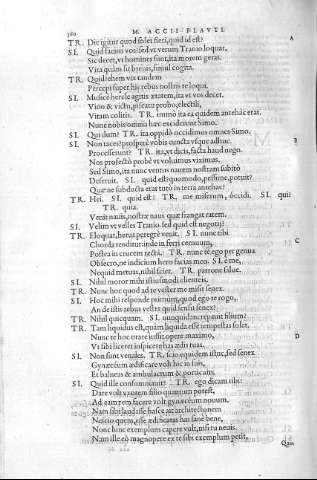 360 M. ACCII PLAVTI
A
TR. Dic igitur quod solet fieri, quid id est?
SI. Quid facitis vos? sed vt verum Tranio loquar,
Sic decet, vt homines sunt, ita morem geras.
Vita quàm sit breuis, simul cogita.
TR. Quid? ehem vix tandem
Percepi super his rebus nostris te loqui.
SI. Musicè hercle agitis ætatem, ita vt vos decet.
Vino & victu, piscatu probo, electili,
Vitam colitis. TR. immo ita ea quidem antehac erat.
Nunc nobis omnia hæc exciderunt Simo.
SI. Qui dum? TR. ita oppidò occidimus omnes Simo.
SI. Non taces? prosperè vobis cuncta vsque adhuc B
Processerunt. TR. ita, vt dicis, facta haud nego.
Nos profectò probè vt voluimus viximus,
Sed Simo, ita nunc ventus nauem nostram subitò
Deseruit. SI. quid est? quomodo, pessime, poruit?
Quæ ne subducta erat tutò in terra antehac?
TR. Hei. SI. quid est? TR. me miserum, occidi. SI. qui?
TR. quia
Venit nauis, nostræ naui quæ frangat ratem.
SI. Velim vt velles Tranio. sed quid est negotij?
TR. Eloquar, herus peregrè venit. SI. nunc tibi
C
Chorda tenditur: inde in ferri
Postea in crucem rectà. TR. nunc te ego per genua
Obsecro, ne indicium hero facias meo. SI. è me,
Nequid metuas, nihil sciet. TR. patrone salue.
SI. Nihil moror mihi istiusmodi clienteis.
TR. Nunc hoc quod ad te vester me misit senex.
SI. Hoc mihi responde primum, quod ego te rogo,
An de istis rebus vester quid sensit senex?
TR. Nihil quicquam. SI. nunquid increpauit filium?
TR. Tam liquidus est, quàm liquida esse tempestas solet,
Nunc te hoc orare iussit opere maximo, D
Vt sibi liceret inspicere has ædis tuas.
SI. Non sunt venales. TR. scio equidem istuc, sed senex
Gynæceum ædificare volt hic in suis,
Et balneas & ambulacrum & porticum.
SI. Quid ille consomniauit? TR. ego dicam tibi:
Dare volt vxorem filio quantum potest,
Ad eam rem facere volt gynæceum nouum,
Nam sibi laudasse hasce ait architectonem
Nescio quem, esse ædificatas has sanè bene,
Nunc hinc exemplum capere vult, nisi tu neuis.
Nam ille eò magnopere ex te sibi exemplum petit,
Quia